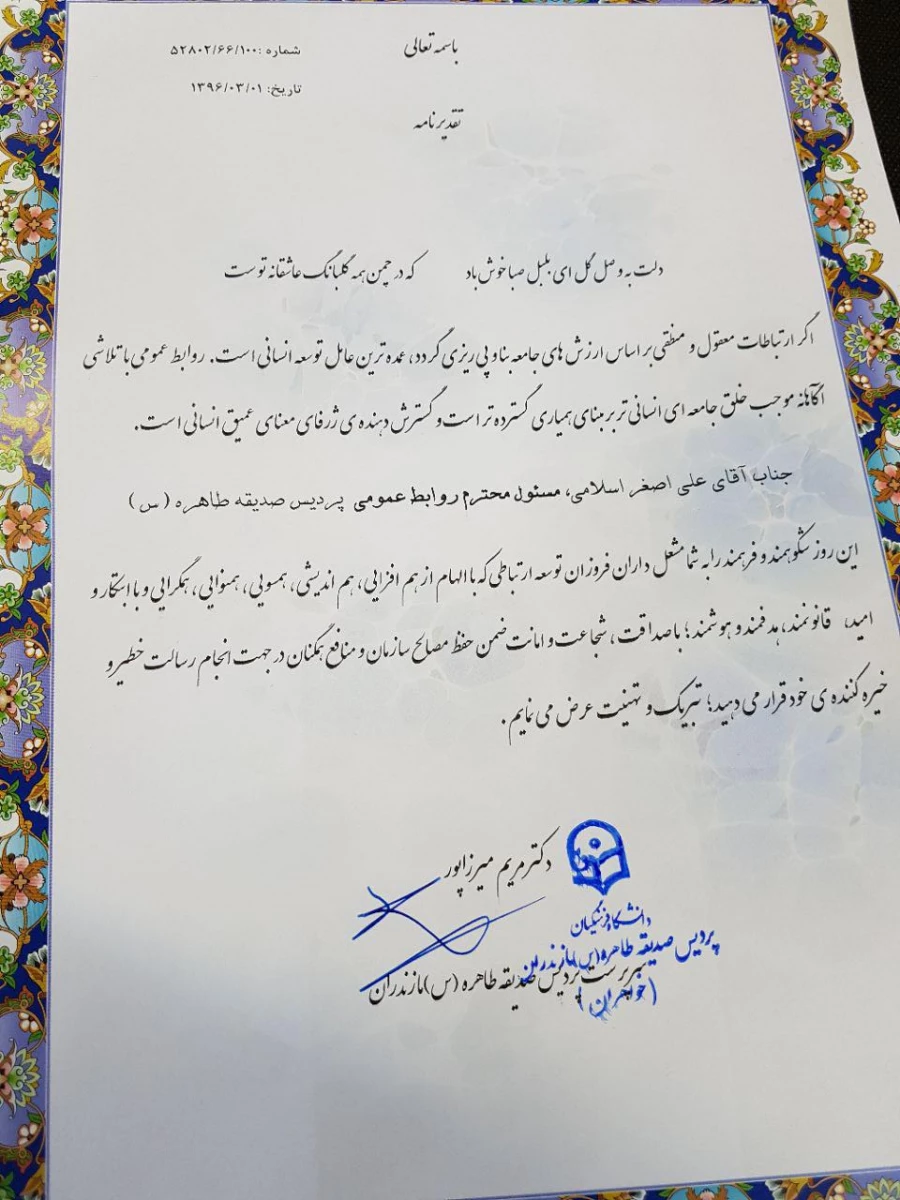 باسمه تعالی
شماره :۵۲۸۰۲/۶۶/۱۰۰
تاریخ: ۱۳۹۶/۰۳/۰۱
تقدیرنامه
دلت به وصل گل ای بلبل صبا خوش باد که در چمن همه گلبانگ عاشقانه توست
اگر ارتباطات معقول و منطقی بر اساس ارزش های جامعه بنا و پی ریزی گردد، عمده ترین عامل توسعه انسانی است. روابط عمومی با تلاشی
آگاهانه موجب خلق جامعه ای انسانی تر بر مبنای همیاری گسترده تر است و گسترش دهنده ی ژرفای معنای عمیق انسانی است.
جناب آقای علی اصغر اسلامی، مسئول محترم روابط عمومی پردیس صدیقه طاهره (س)
این روز شکوهمند و فرهمند را به شما مشعل داران فروزان توسعه ارتباطی که با الهام از هم افزایی، هم اندیشی، همسویی، همنوایی، همگرایی و با ابتکار و
امید، قانونمند، هدفمند و هوشمند؛ با صداقت، شجاعت و امانت ضمن حفظ مصالح سازمان و منافع همگنان در جهت انجام رسالت خطیر و
خیره کننده ی خود قرار می دهید؛ تبریک و تهنیت عرض می نمایم.
دکتر مریم میرزاپور
سرپرست پردیس صدیقه طاهره (س) مازندران
دانشگاه فرهنگیان
پردیس صدیقه طاهره (س) مازندران
(خواهران)